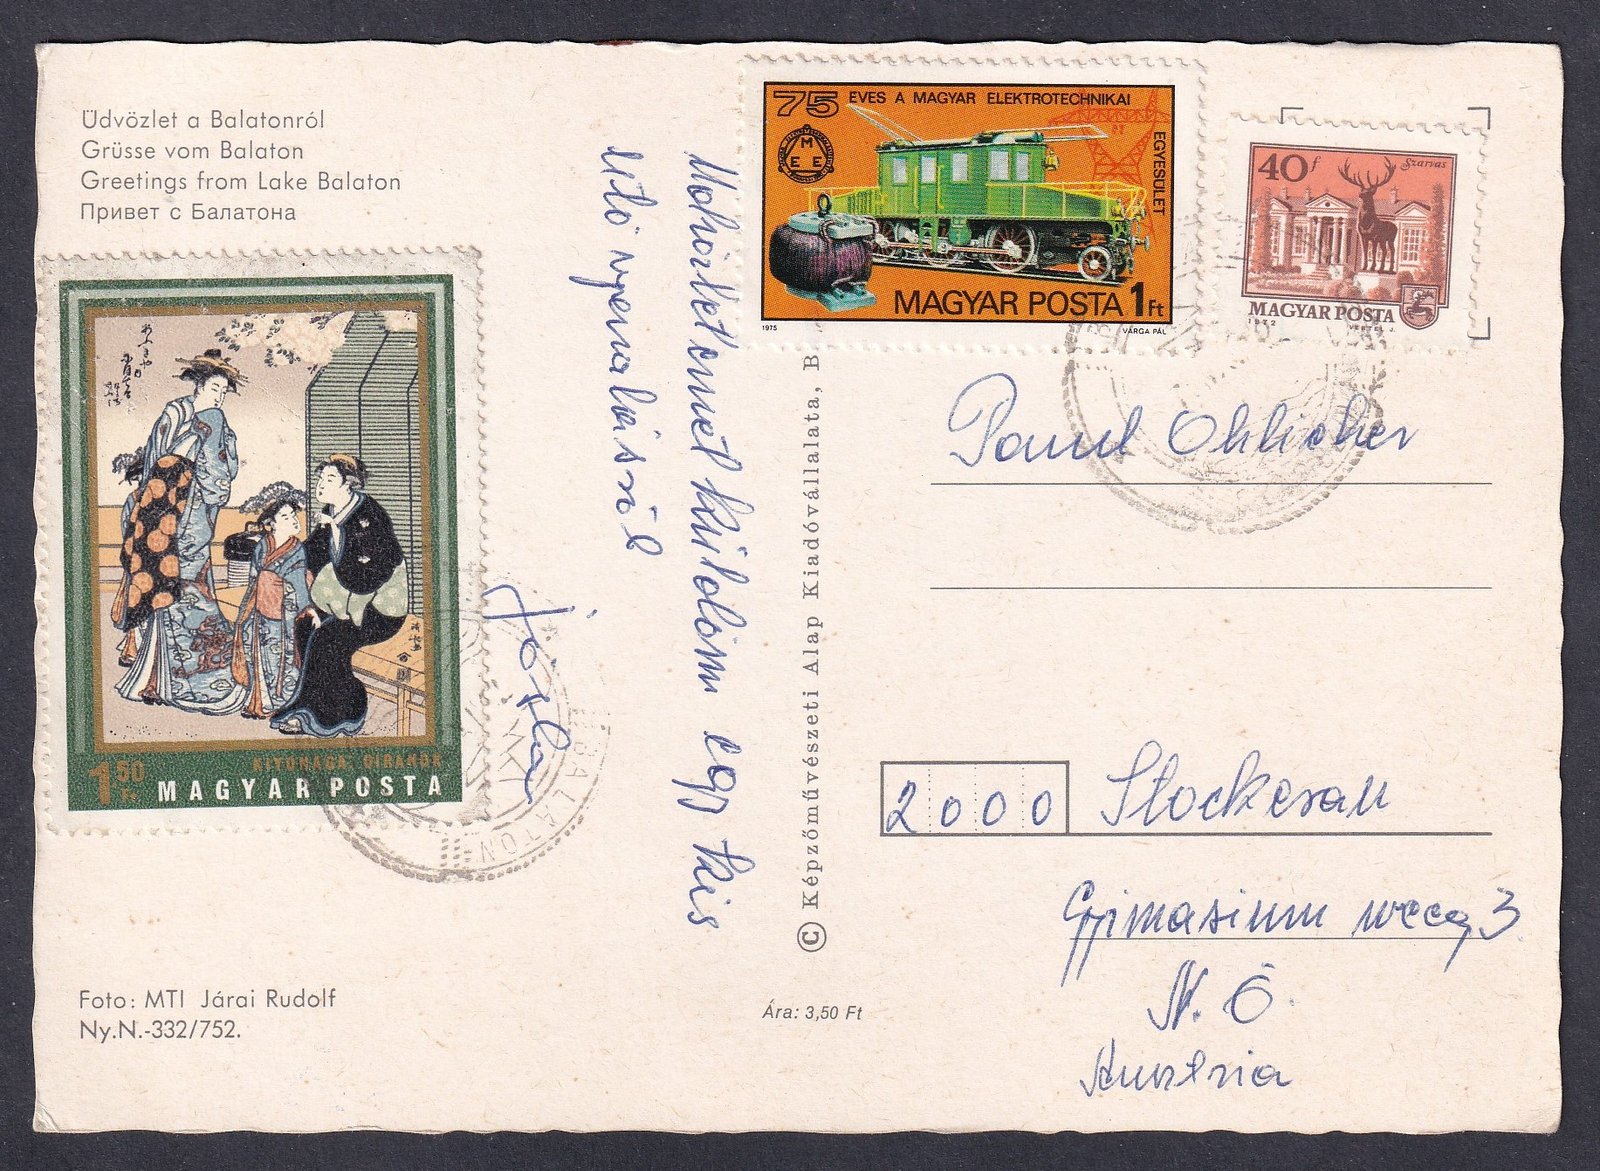 Üdvözlet a Balatonról
Grüsse vom Balaton
Greetings from Lake Balaton
Привет с Балатона
KIYONAGA, OIRANOK
1 50 Ft
MAGYAR POSTA
Foto: MTI Járai Rudolf
Ny.N.-332/752.
egy kis
utó nyaralásról
© Képzőművészeti Alap Kiadóvállalata, B
Ára: 3,50 Ft
75 ÉVES A MAGYAR ELEKTROTECHNIKAI
EGYESÜLET
M
E E
MAGYAR POSTA 1 Ft
1975 VARGA PÁL
40 f Szarvas
MAGYAR POSTA
1972 VERTEL J.
BALATON
2000 Stockerau
Gyimasium weeg 3
N. Ö.
Austria